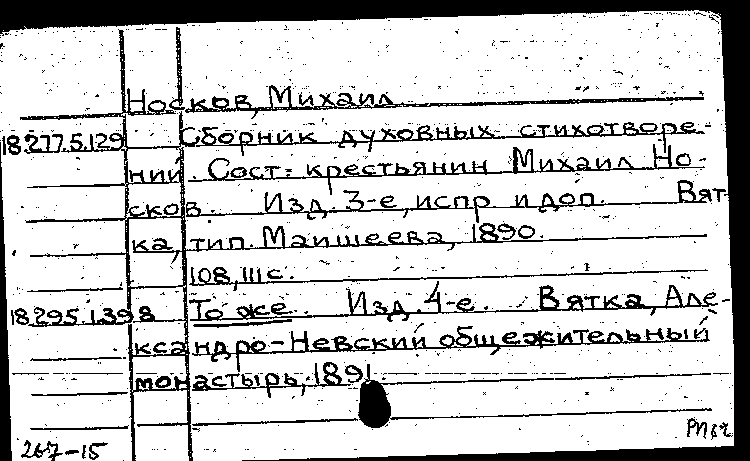 Носков, Михаил
18.277.5.129 Сборник духовных стихотворе-
ний. Сост. крестьянин Михаил Но-
сков. Изд. 3-е, испр. и доп. Вят-
ка, тип. Маишеева, 1890.
108, III с.
18.295.1.398 То же. Изд. 4-е. Вятка, Але-
ксандро-Невский общежительный
монастырь, 1891.
267-15